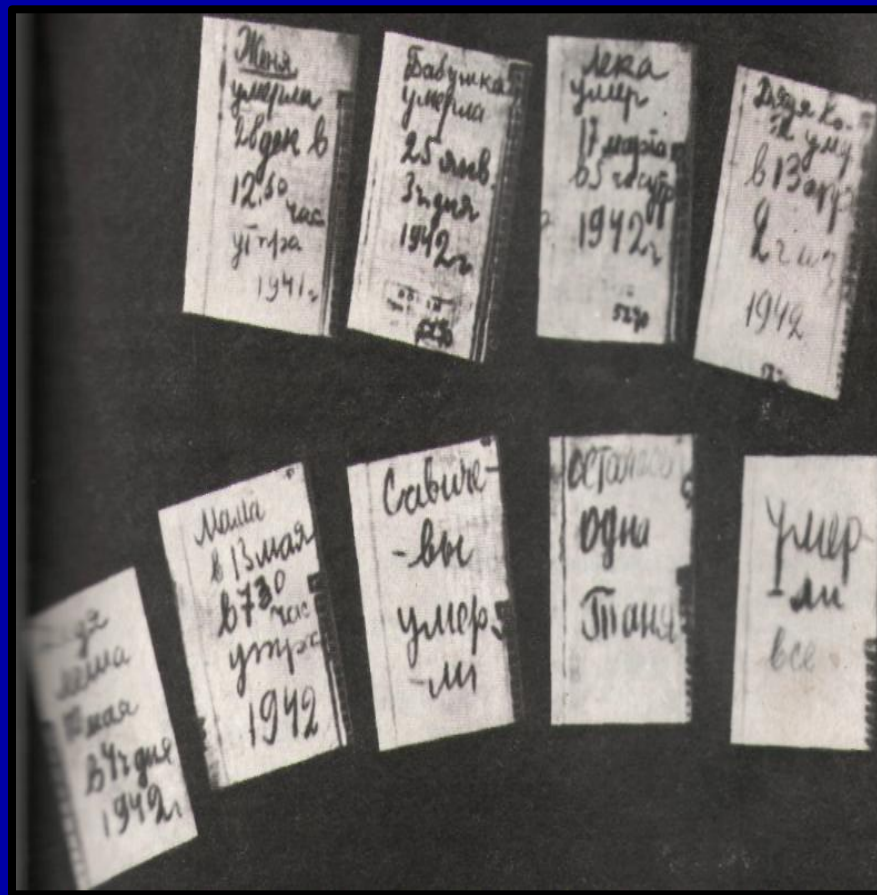 Женя
умерла
28 дек в
12.30
час
утра
1941 г
Бабушка
умерла
25 янв.
3 ч дня
1942 г
5290
Лека
умер
17 марта
в 5 час утр
1942 г
5290
Дядя
в 13 апр
2 ч
1942
леша
мая
в 4 ч дня
1942 г
Мама
в 13 мая
в 7 30
час
утра
1942
Савиче-
-вы
умер
-ли
осталась
одна
Таня
Умер-
-ли
все